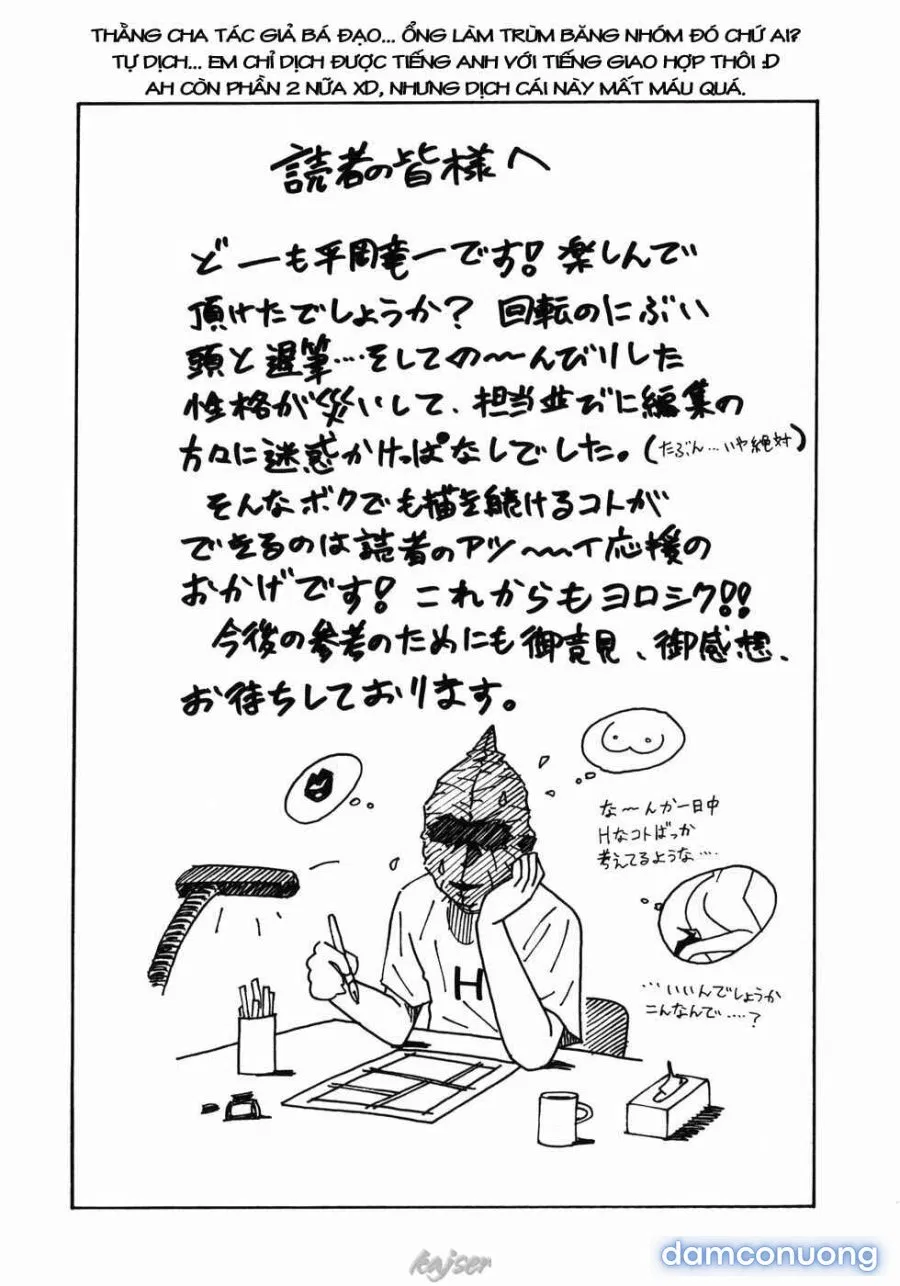 THẰNG CHA TÁC GIẢ BÁ ĐẠO... ỔNG LÀM TRÙM BĂNG NHÓM ĐÓ CHỨ AI?
TỰ DỊCH... EM CHỈ DỊCH ĐƯỢC TIẾNG ANH VỚI TIẾNG GIAO HỢP THÔI :D
AH CÒN PHẦN 2 NỮA XD, NHƯNG DỊCH CÁI NÀY MẤT MÁU QUÁ.
読者の皆様へ
どーも平岡竜一です!楽しんで
頂けたでしょうか?回転のにぶい
頭と遅筆…そしての〜〜んびりした
性格が災いして、担当並びに編集の
方々に迷惑かけっぱなしでした。(たぶん…いや絶対)
そんなボクでも描き続けるコトが
できるのは読者のアツ〜〜イ応援の
おかげです!これからもヨロシク!!
今後の参考のためにも御意見、御感想、
お待ちしております。
な〜んか一日中
Hなコトばっか
考えてるような....
H
...いいんでしょうか
こんなんで....?
kajser
damconuong